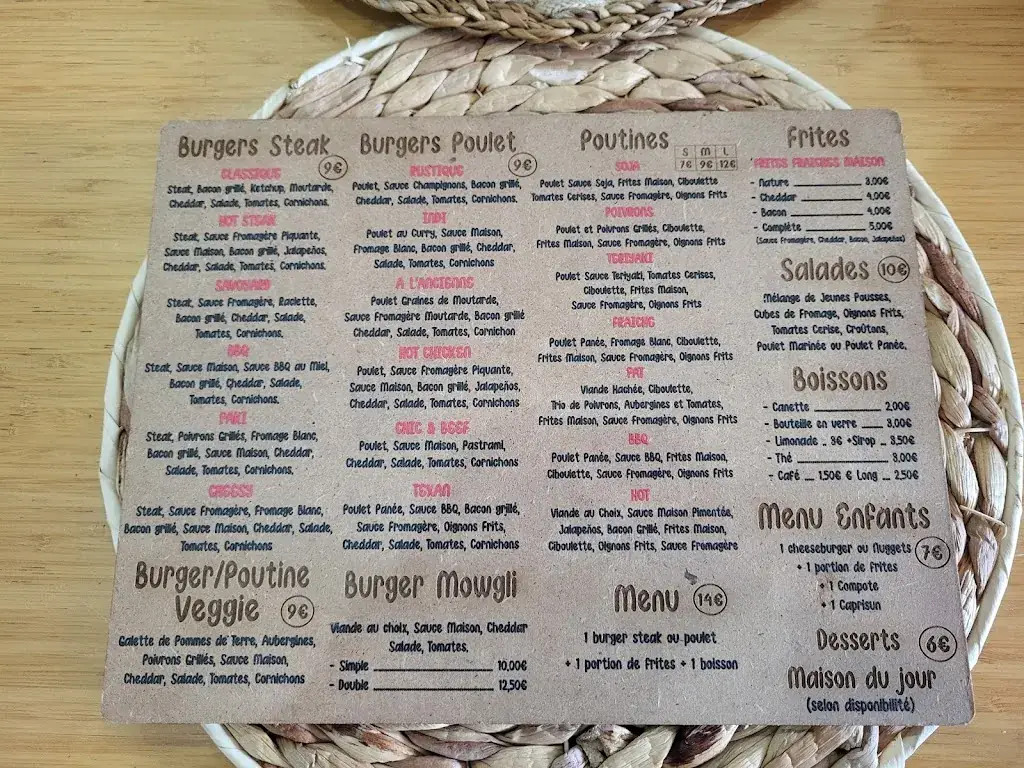 Burgers Steak
9€
CLASSIQUE
Steak, Bacon grillé, Ketchup, Moutarde,
Cheddar, Salade, Tomates, Cornichons.
HOT STEAK
Steak, Sauce Fromagère Piquante,
Sauce Maison, Bacon grillé, Jalapeños,
Cheddar, Salade, Tomates, Cornichons.
SAVOYARD
Steak, Sauce Fromagère, Raclette,
Bacon grillé, Cheddar, Salade,
Tomates, Cornichons.
BBQ
Steak, Sauce Maison, Sauce BBQ au Miel,
Bacon grillé, Cheddar, Salade,
Tomates, Cornichons.
PARI
Steak, Poivrons Grillés, Fromage Blanc,
Bacon grillé, Sauce Maison, Cheddar,
Salade, Tomates, Cornichons.
CHEESY
Steak, Sauce Fromagère, Fromage Blanc,
Bacon grillé, Sauce Maison, Cheddar, Salade,
Tomates, Cornichons
Burger/Poutine
Veggie 9€
Galette de Pommes de Terre, Aubergines,
Poivrons Grillés, Sauce Maison,
Cheddar, Salade, Tomates, Cornichons
Burgers Poulet
9€
RUSTIQUE
Poulet, Sauce Champignons, Bacon grillé,
Cheddar, Salade, Tomates, Cornichons.
INDI
Poulet au Curry, Sauce Maison,
Fromage Blanc, Bacon grillé, Cheddar,
Salade, Tomates, Cornichons
A L'ANCIENNE
Poulet Graines de Moutarde,
Sauce Fromagère Moutarde, Bacon grillé
Cheddar, Salade, Tomates, Cornichon
HOT CHICKEN
Poulet, Sauce Fromagère Piquante,
Sauce Maison, Bacon grillé, Jalapeños,
Cheddar, Salade, Tomates, Cornichons
CHIC & BEEF
Poulet, Sauce Maison, Pastrami,
Cheddar, Salade, Tomates, Cornichons
TEXAN
Poulet Panée, Sauce BBQ, Bacon grillé,
Sauce Fromagère, Oignons Frits,
Cheddar, Salade, Tomates, Cornichons
Burger Mowgli
Viande au choix, Sauce Maison, Cheddar
Salade, Tomates,
- Simple 10,00€
- Double 12,50€
Poutines
S M L
7€ 9€ 12€
SOJA
Poulet Sauce Soja, Frites Maison, Ciboulette
Tomates Cerises, Sauce Fromagère, Oignons Frits
POIVRONS
Poulet et Poivrons Grillés, Ciboulette,
Frites Maison, Sauce Fromagère, Oignons Frits
TERIYAKI
Poulet Sauce Teriyaki, Tomates Cerises,
Ciboulette, Frites Maison,
Sauce Fromagère, Oignons Frits
FRAICHE
Poulet Panée, Fromage Blanc, Ciboulette,
Frites Maison, Sauce Fromagère, Oignons Frits
FAT
Viande Hachée, Ciboulette,
Trio de Poivrons, Aubergines et Tomates,
Frites Maison, Sauce Fromagère, Oignons Frits
BBQ
Poulet Panée, Sauce BBQ, Frites Maison,
Ciboulette, Sauce Fromagère, Oignons Frits
HOT
Viande au Choix, Sauce Maison Pimentée,
Jalapeños, Bacon Grillé, Frites Maison,
Ciboulette, Oignons Frits, Sauce Fromagère
Menu 14€
1 burger steak ou poulet
+ 1 portion de frites + 1 boisson
Frites
FRITES FRAICHES MAISON
- Nature 3,00€
- Cheddar 4,00€
- Bacon 4,00€
- Complète 5,00€
(Sauce Fromagère, Cheddar, Bacon, Jalapeños)
Salades 10€
Mélange de Jeunes Pousses,
Cubes de Fromage, Oignons Frits,
Tomates Cerise, Croûtons,
Poulet Marinée ou Poulet Panée.
Boissons
- Canette 2,00€
- Bouteille en verre 3,00€
- Limonade 3€ +Sirop 3,50€
- Thé 3,00€
- Café 1,50€ € Long 2,50€
Menu Enfants
1 cheeseburger ou Nuggets 7€
+ 1 portion de frites
+ 1 Compote
+ 1 Caprisun
Desserts 6€
Maison du jour
(selon disponibilité)